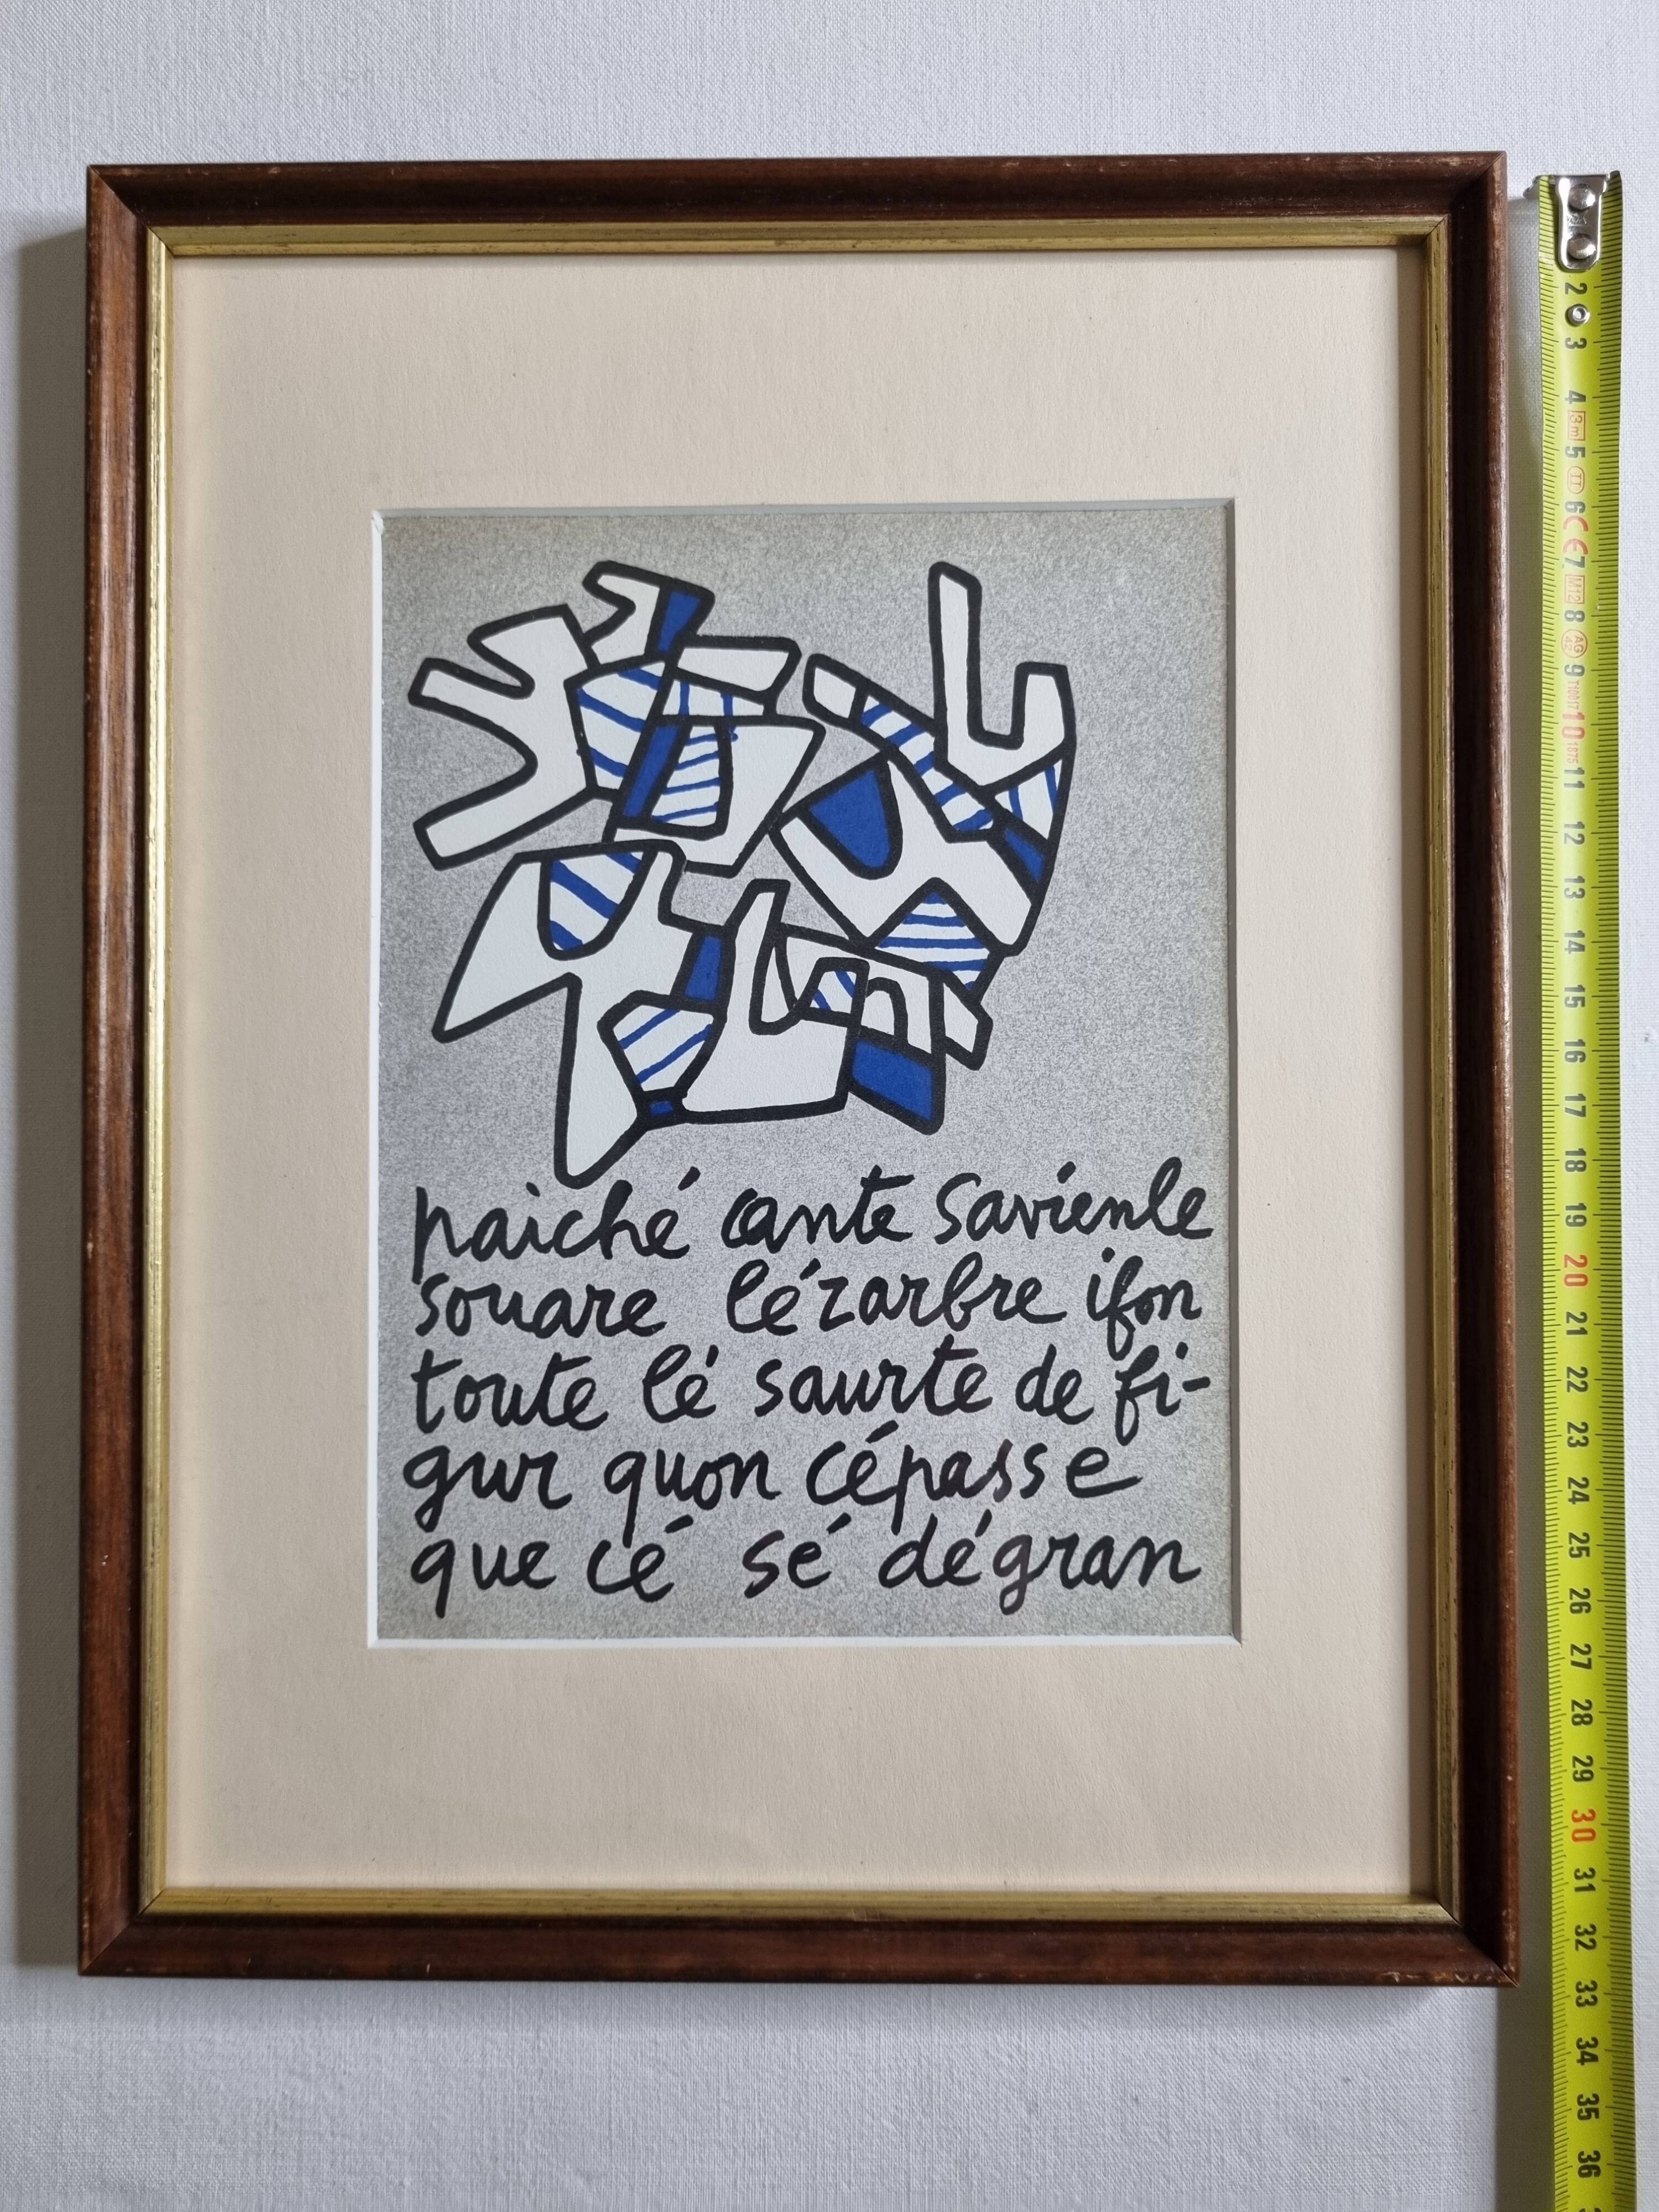 paiché cante savienle
souare lézarbre ifon
toute lé saurte de fi-
gur quon cépasse
que cé sé dégran
2
3
4
3m
5
II
6
CE
7
M12
8
9
10
11
12
13
14
15
16
17
18
19
20
21
22
23
24
25
26
27
28
29
30
31
32
33
34
35
36